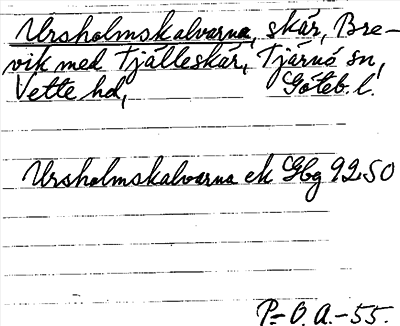 Ursholmskalvarna, skär, Bre-
vik med Tjälleskär, Tjärnö sn,
Vette hd, Göteb. l.
Ursholmskalvarna ek Gbg 92.50
P.-O. A. -55.